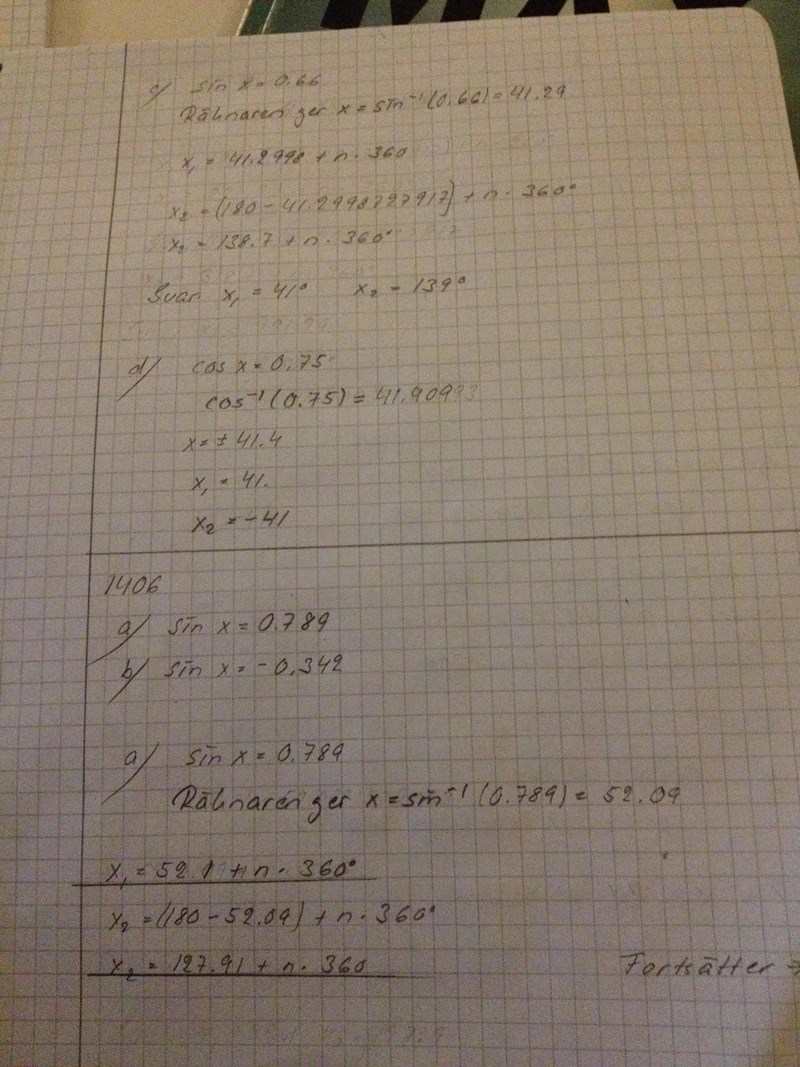 c) sin x = 0.66
Räknaren ger x = sin⁻¹(0.66) = 41.29
x₁ = 41.2998 + n · 360
x₂ = (180 - 41.2998727917) + n · 360°
x₂ = 138.7 + n · 360°
Svar x₁ = 41° x₂ = 139°
d) cos x = 0.75
cos⁻¹(0.75) = 41.40993
x = ± 41.4
x₁ = 41.
x₂ = -41
1406
a) sin x = 0.789
b) sin x = -0.342
a) sin x = 0.789
Räknaren ger x = sin⁻¹(0.789) = 52.09
x₁ = 52.1 + n · 360°
x₂ = (180 - 52.09) + n · 360°
x₂ = 127.91 + n · 360
Fortsätter →